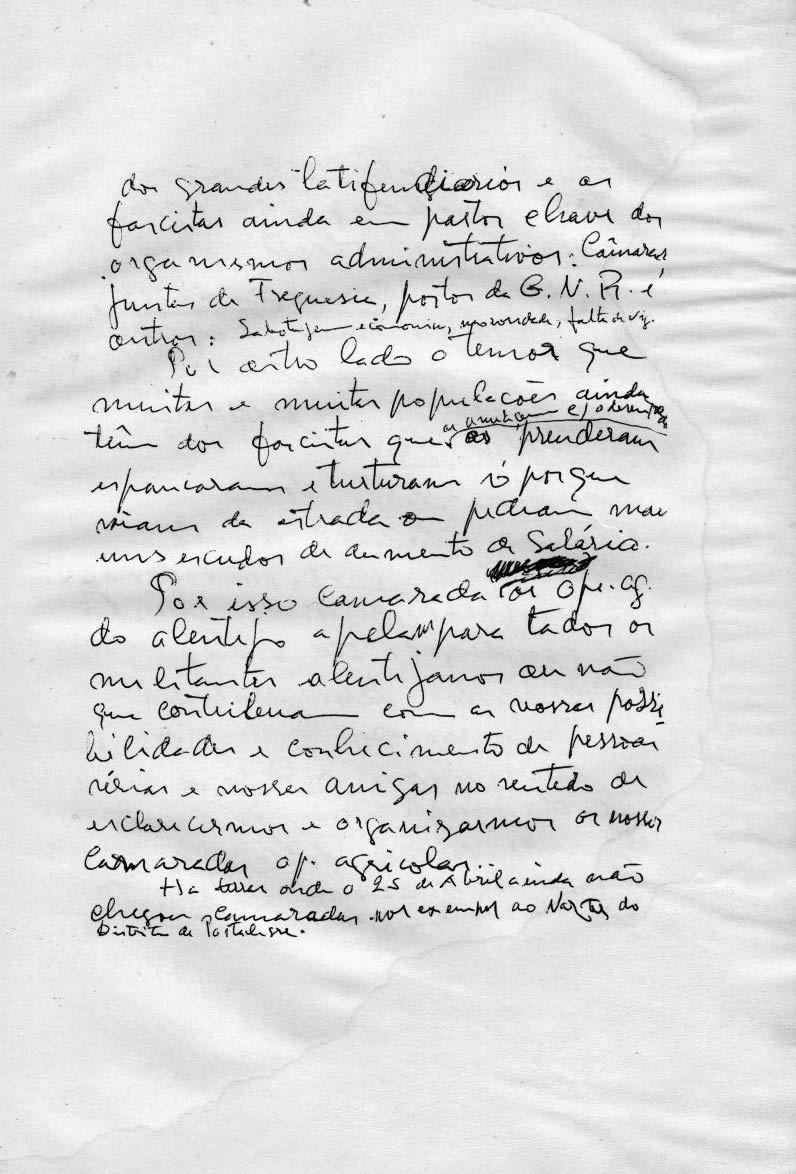 dos grandes latifundiarios e os
fascistas ainda em pastos chave dos
organismos administrativos: Câmaras
Juntas de Freguesia, postos da G. N. R. e
outros: Sabotagem económica, morosidade, falta de vig.
Por outro lado o temor que
muitas e muitas populações ainda
têm dos fascistas que os prenderam
espancaram e turturam só porque
da estrada ou pediam mais
uns escudos de aumento de Salário.
Por isso Camarada os ope. ag.
do alentejo apelam para todos os
militantes alentejanos ou não
que contribuam com as nossas possi
bilidades e conhecimento de pessoas
sérias e nossas amigas no sentido de
esclarecermos e organizarmos os nossos
Camaradas op. agricolas.
Ha terras onde o 25 de Abril ainda não
chegou, camaradas por exempol ao Norte do
Distrito de Portalegre.